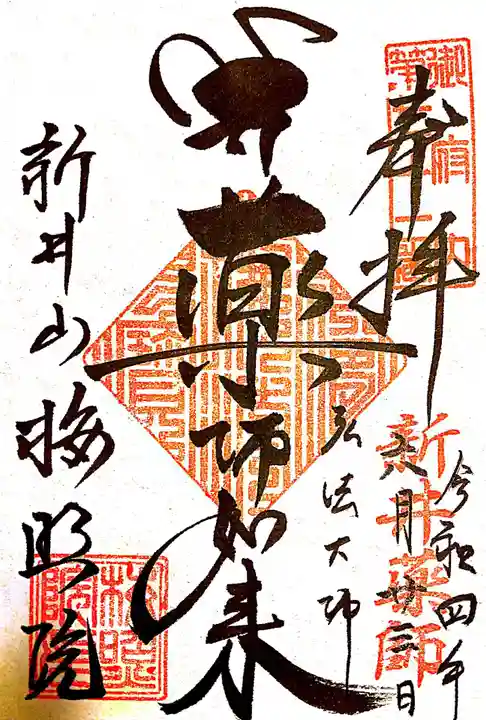 奉拝
令和四年
六月廿三日
新井薬師
薬師如来
弘法大師
新井山梅照院